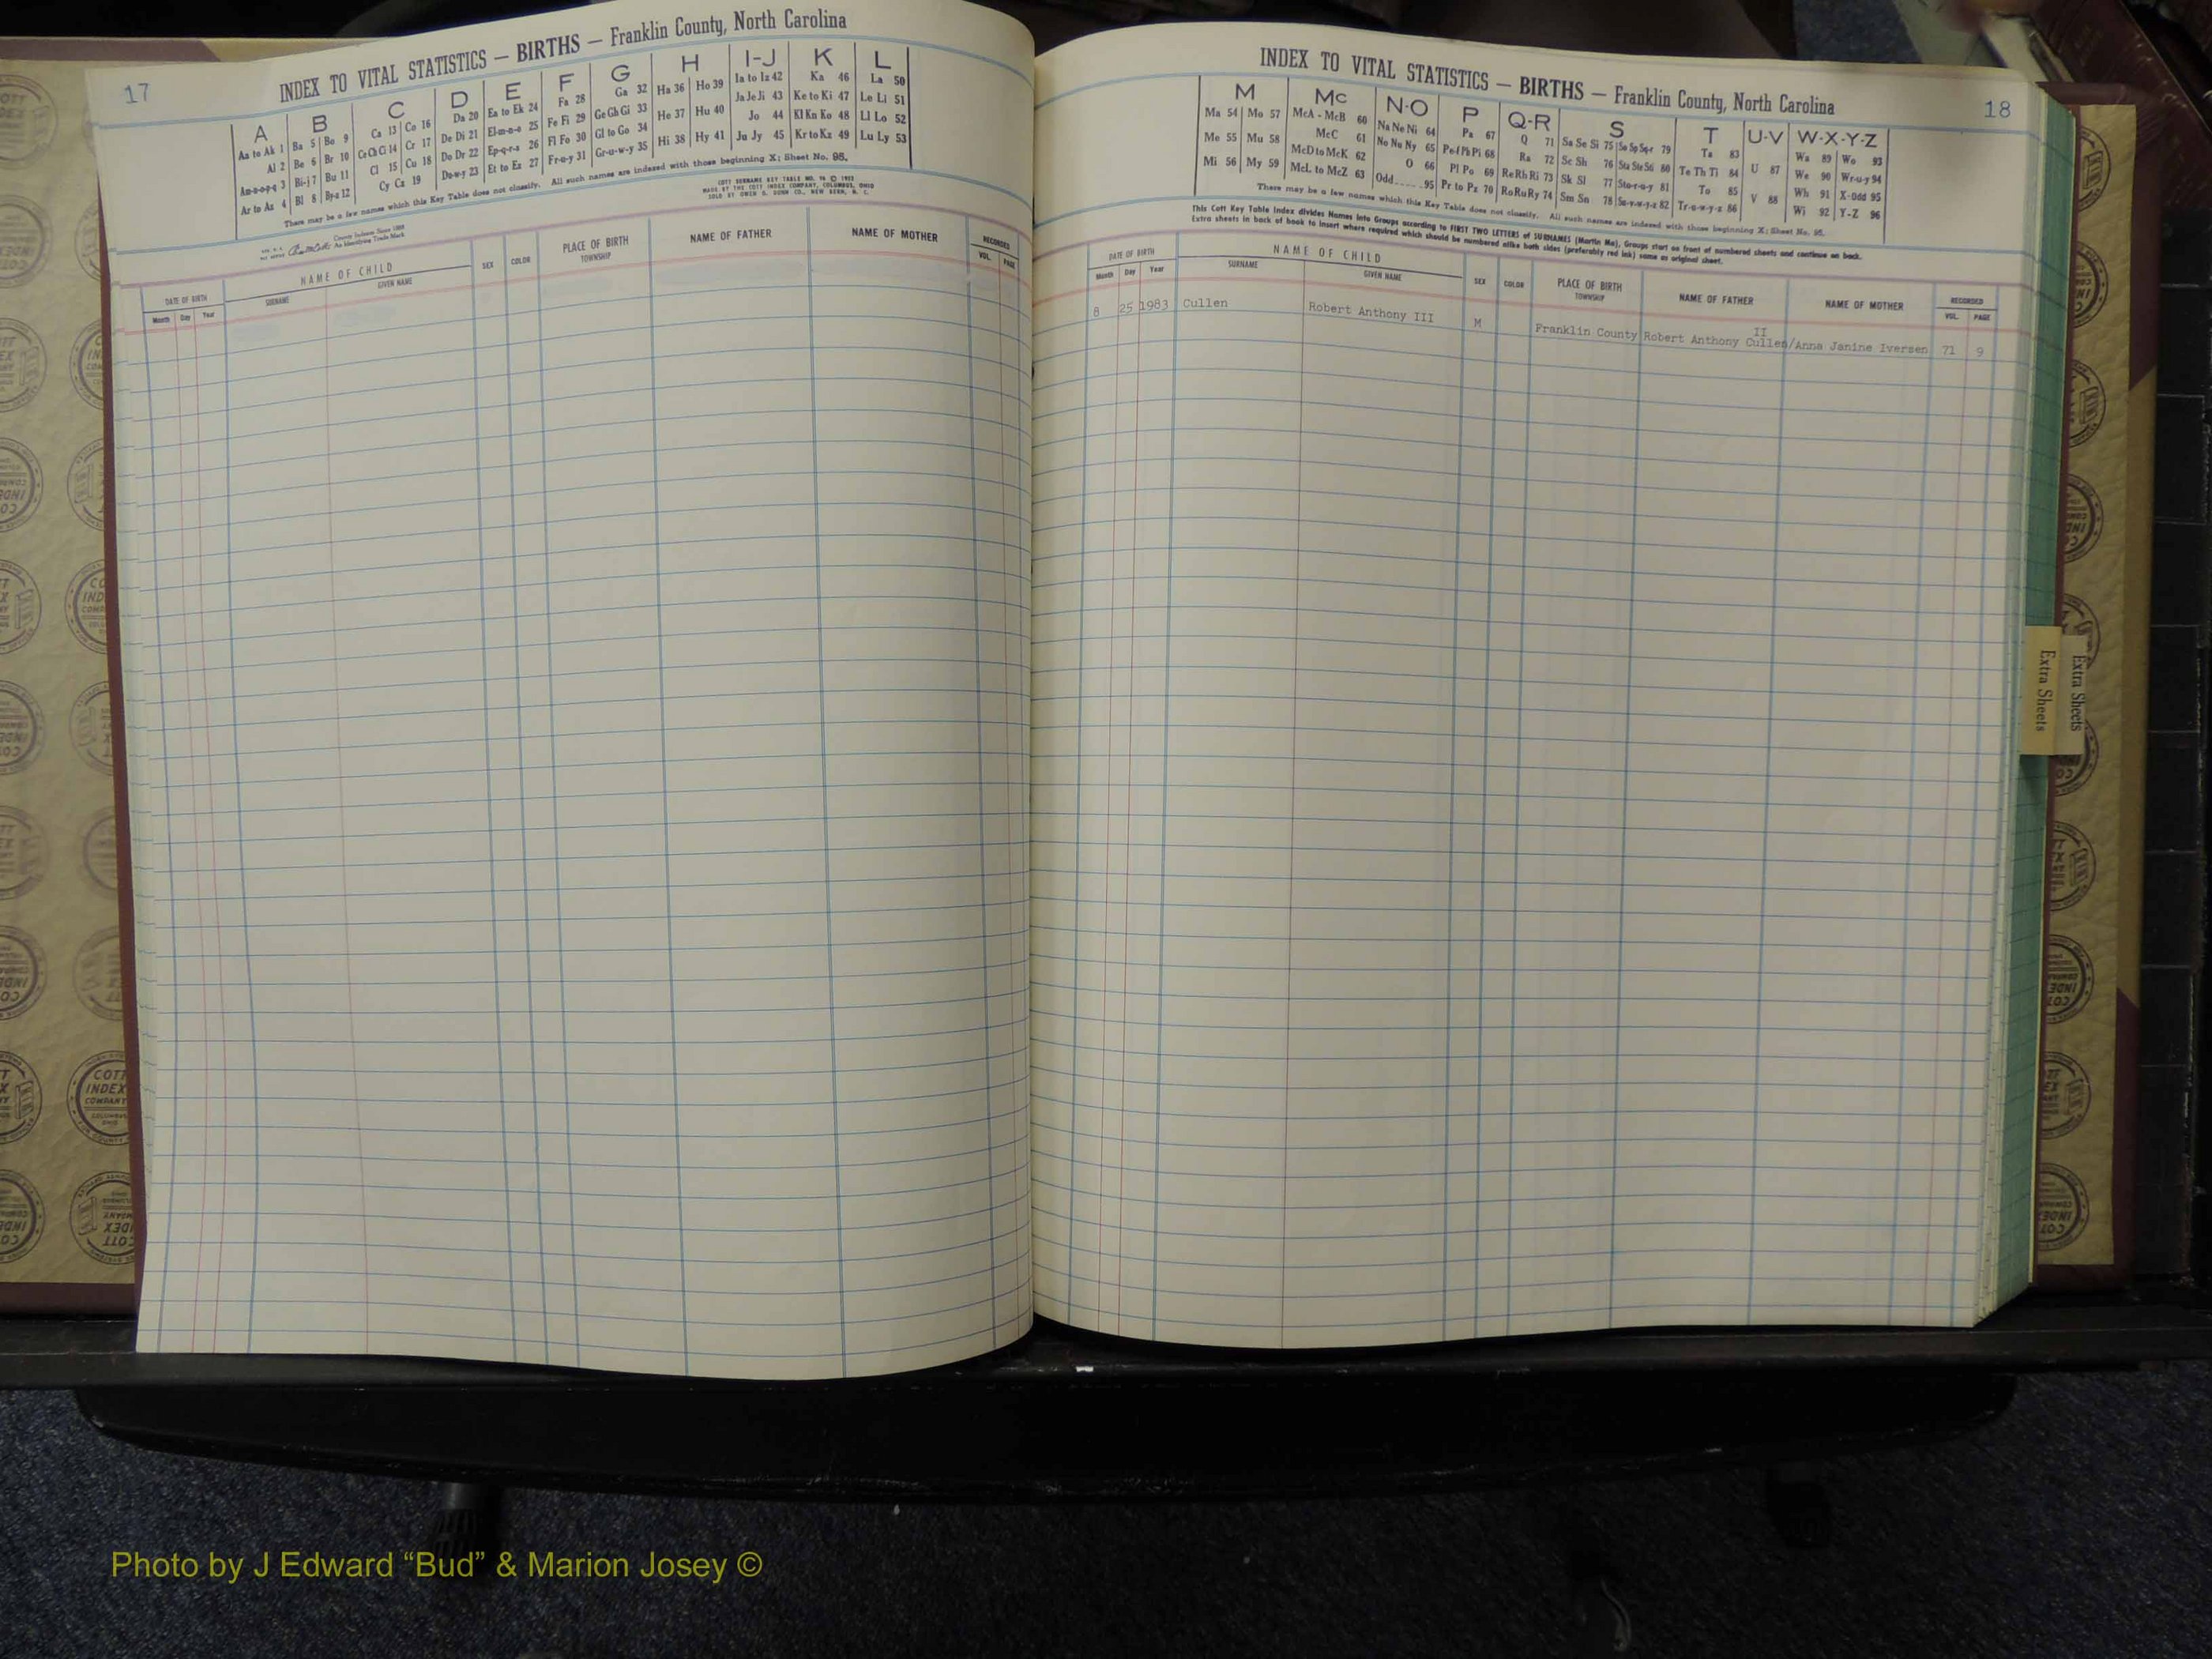 17
INDEX TO VITAL STATISTICS — BIRTHS — Franklin County, North Carolina
A B C D E F G H I-J K L
Aa to Ak 1 Ba 5 Bo 9 Ca 13 Co 16 Da 20 Ea to Ek 24 Fa 28 Ga 32 Ha 36 Ho 39 Ia to Iz 42 Ka 46 La 50
Al 2 Be 6 Br 10 Ce Ch Ci 14 Cr 17 De Di 21 El-m-n-o 25 Fe Fi 29 Ge Gh Gi 33 He 37 Hu 40 Ja Je Ji 43 Ke to Ki 47 Le Li 51
Am-n-o-p-q 3 Bi-j 7 Bu 11 Cl 15 Cu 18 Do Dr 22 Ep-q-r-s 26 Fl Fo 30 Gl to Go 34 Hi 38 Hy 41 Jo 44 Kl Kn Ko 48 Ll Lo 52
Ar to Az 4 Bl 8 By-z 12 Cy Cz 19 Du-w-y 23 Et to Ez 27 Fr-u-y 31 Gr-u-w-y 35 Ju Jy 45 Kr to Kz 49 Lu Ly 53
There may be a few names which this Key Table does not classify. All such names are indexed with those beginning X; Sheet No. 95.
COTT SURNAME KEY TABLE NO. 96 ©
MADE BY THE COTT INDEX COMPANY, COLUMBUS, OHIO
SOLD BY OWEN G. DUNN CO., NEW BERN, N. C.
County Indexes Since 1888
An Identifying Trade Mark
DATE OF BIRTH NAME OF CHILD SEX COLOR PLACE OF BIRTH NAME OF FATHER NAME OF MOTHER RECORDED
Month Day Year SURNAME GIVEN NAME TOWNSHIP VOL. PAGE
18
INDEX TO VITAL STATISTICS — BIRTHS — Franklin County, North Carolina
M Mc N-O P Q-R S T U-V W-X-Y-Z
Ma 54 Mo 57 McA - McB 60 Na Ne Ni 64 Pa 67 Q 71 Sa Se Si 75 So Sp Sq-r 79 Ta 83 U 87 Wa 89 Wo 93
Me 55 Mu 58 McC 61 No Nu Ny 65 Pe-f Ph Pi 68 Ra 72 Sc Sh 76 Sta Ste Sti 80 Te Th Ti 84 V 88 We 90 Wr-u-y 94
Mi 56 My 59 McD to McK 62 O 66 Pl Po 69 Re Rh Ri 73 Sk Sl 77 Sto-r-u-y 81 To 85 Wh 91 X-Odd 95
McL to McZ 63 Odd 95 Pr to Pz 70 Ro Ru Ry 74 Sm Sn 78 Su-v-w-y-z 82 Tr-u-w-y-z 86 Wi 92 Y-Z 96
There may be a few names which this Key Table does not classify. All such names are indexed with those beginning X; Sheet No. 95.
This Cott Key Table Index divides Names into Groups according to FIRST TWO LETTERS of SURNAMES (Martin Ma), Groups start on front of numbered sheets and continue on back.
Extra sheets in back of book to insert where required which should be numbered alike both sides (preferably red ink) same as original sheet.
DATE OF BIRTH NAME OF CHILD SEX COLOR PLACE OF BIRTH NAME OF FATHER NAME OF MOTHER RECORDED
Month Day Year SURNAME GIVEN NAME TOWNSHIP VOL. PAGE
II
8 25 1983 Cullen Robert Anthony III M Franklin County Robert Anthony Cullen/Anna Janine Iversen 71 9
Extra Sheets
Extra Sheets
COTT
INDEX
COMPANY
Photo by J Edward “Bud” & Marion Josey ©